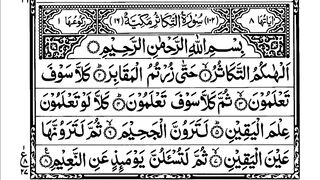 اٰیاتها ٨ (١٠٢) سُوْرَةُ التَّكَاثُرِ مَكِّیَّةٌ (١٦) رکوعها ١
بِسْمِ اللّٰهِ الرَّحْمٰنِ الرَّحِیْمِ
اَلْهٰىكُمُ التَّكَاثُرُ ۙ حَتّٰى زُرْتُمُ الْمَقَابِرَ ؕ كَلَّا سَوْفَ
تَعْلَمُوْنَ ۙ ثُمَّ كَلَّا سَوْفَ تَعْلَمُوْنَ ؕ كَلَّا لَوْ تَعْلَمُوْنَ
عِلْمَ الْیَقِیْنِ ؕ لَتَرَوُنَّ الْجَحِیْمَ ۙ ثُمَّ لَتَرَوُنَّهَا
عَیْنَ الْیَقِیْنِ ۙ ثُمَّ لَتُسْـَٔلُنَّ یَوْمَىِٕذٍ عَنِ النَّعِیْمِ